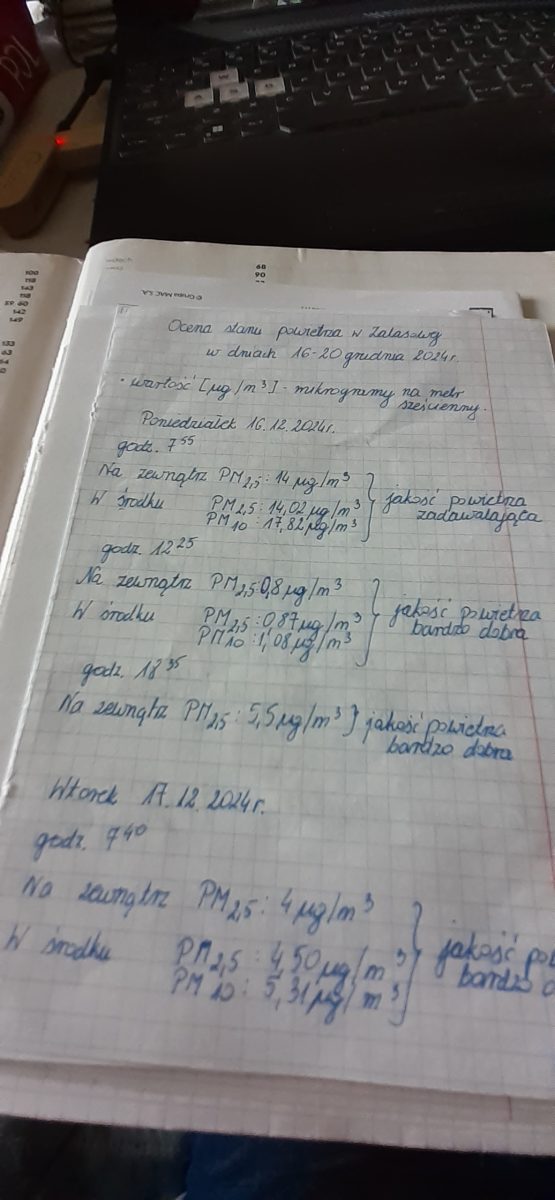 100
118
143
118
59 60
142
149
133
63
64
68
90
© Grupa MAC S.A.
Ocena stanu powietrza w Zalasowej
w dniach 16-20 grudnia 2024r.
• wartość [µg/m³] - mikrogramy na metr
sześcienny.
Poniedziałek 16.12.2024r.
godz. 7⁵⁵
Na zewnątrz PM₂,₅: 14 µg/m³
W środku PM₂,₅: 14,02 µg/m³
PM₁₀: 17,82 µg/m³
jakość powietrza
zadawalająca
godz. 12²⁵
Na zewnątrz PM₂,₅: 0,8 µg/m³
W środku PM₂,₅: 0,87 µg/m³
PM₁₀: 1,08 µg/m³
jakość powietrza
bardzo dobra
godz. 18³⁵
Na zewnątrz PM₂,₅: 5,5 µg/m³ } jakość powietrza
bardzo dobra
Wtorek 17.12.2024r.
godz. 7⁴⁰
Na zewnątrz PM₂,₅: 4 µg/m³
W środku PM₂,₅: 4,50 µg/m³
PM₁₀: 5,31 µg/m³
jakość po
bardzo d